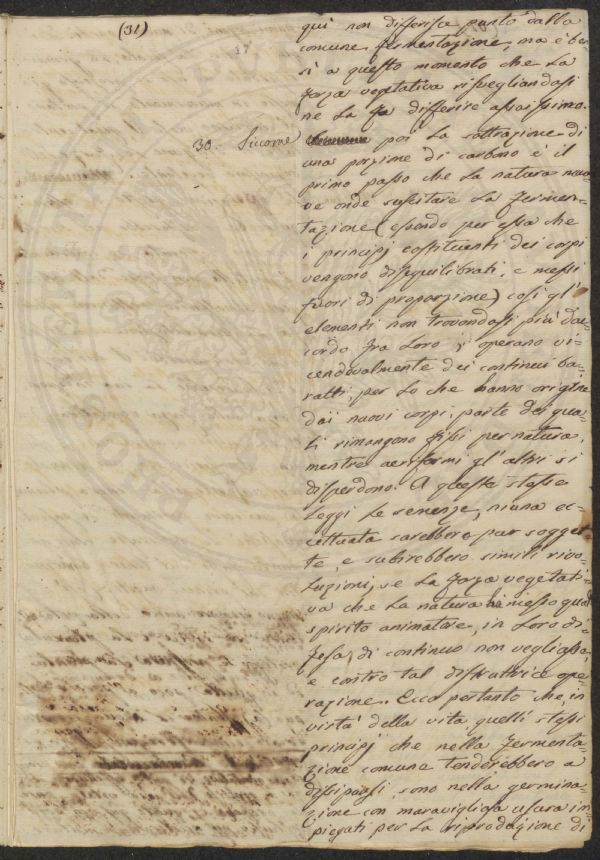 (31)
qui non differisce punto dalla
comune fermentazione, ma è ben
sì a questo momento che la
forza vegetativa risvegliandosi
ne la fa differire assaissimo.
30. Siccome poi la sottrazione di
una porzione di carbono è il
primo passo che la natura muo-
ve onde suscitare la fermen-
tazione (essendo per essa che
i principj costituenti dei corpi
vengono disequilibrati, e messi
fuori di proporzione) così gl'
elementi non trovandosi più d'ac-
cordo fra loro, s' operano vi-
cendevolmente dei continui ba-
ratti, per lo che hanno origine
dai nuovi corpi, parte dei qua-
li rimangono fissi per natura,
mentre aeriformi gl' altri si
disperdono. A queste stesse
leggi le semenze, niuna ec-
cettuata sarebbero pur sogget-
te, e subirebbero simili rivo-
luzioni, se la forza vegetati-
va che la natura ha messo qual
spirito animatore, in loro di-
fesa, di continuo non vegliasse,
e contro tal distruttrice ope-
razione. Ecco pertanto che, in
virtà della vita quelli stessi
principj che nella fermenta-
zione comune tenderebbero a
dissiparsi, sono nella germina-
zione con maravigliosa usura im-
piegati per la riproduzione di